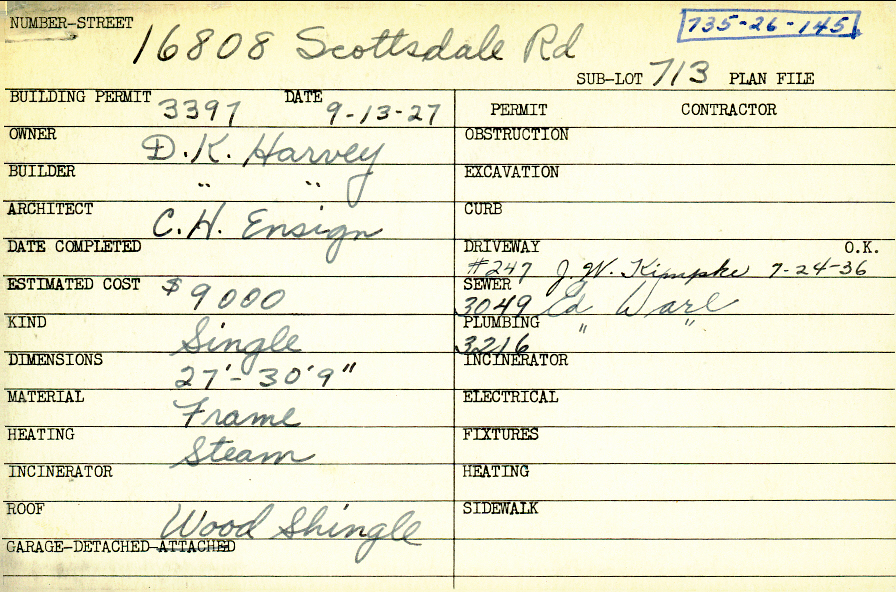 NUMBER-STREET 16808 Scottsdale Rd 735-26-145
SUB-LOT 713 PLAN FILE
BUILDING PERMIT 3397 DATE 9-13-27
OWNER D.K. Harvey
BUILDER " "
ARCHITECT C.H. Ensign
DATE COMPLETED
ESTIMATED COST $9000
KIND Single
DIMENSIONS 27'-30'9"
MATERIAL Frame
HEATING Steam
INCINERATOR
ROOF Wood Shingle
GARAGE-DETACHED-ATTACHED
PERMIT CONTRACTOR
OBSTRUCTION
EXCAVATION
CURB
DRIVEWAY O.K.
#247 J.W. Kimpke 7-24-36
SEWER
3049 Ed
PLUMBING " "
3216
INCINERATOR
ELECTRICAL
FIXTURES
HEATING
SIDEWALK